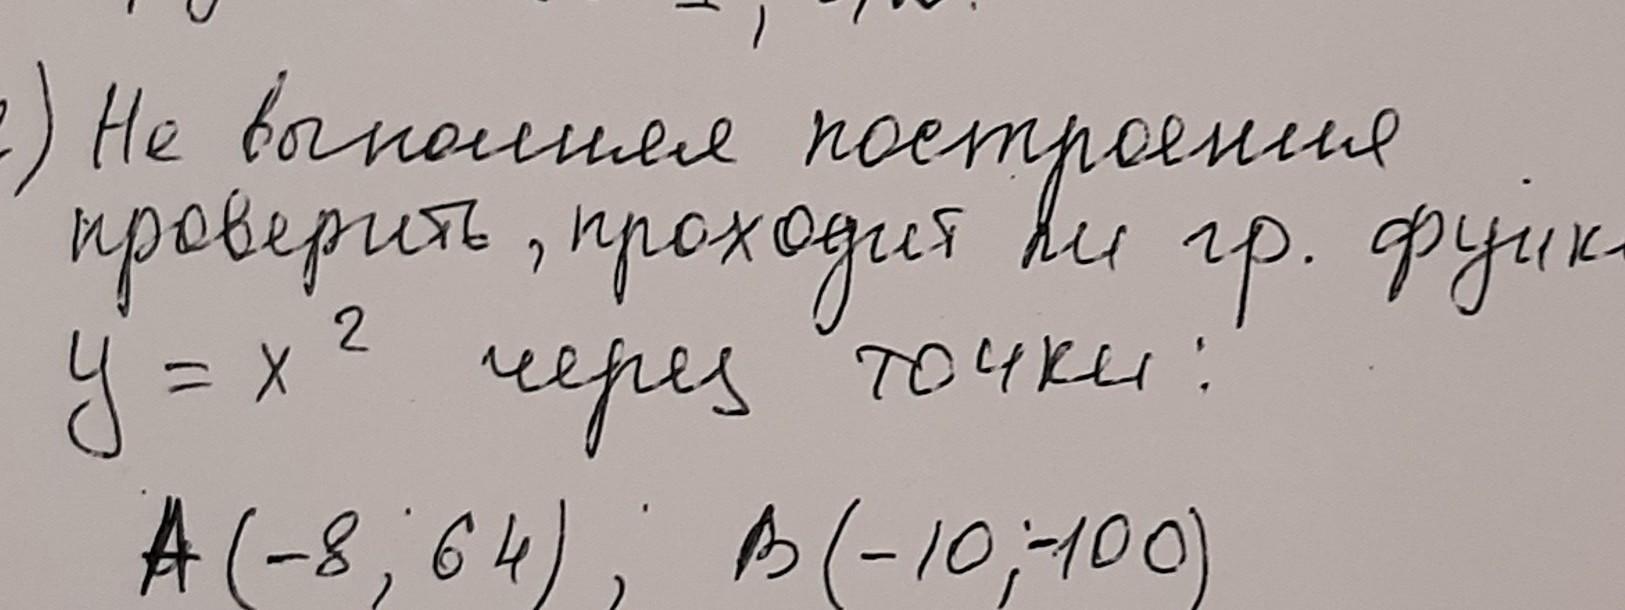 ) Не выполняя построения
проверить, проходит ли гр. функ
y = x²  через точки:
A(-8; 64); B(-10; -100)